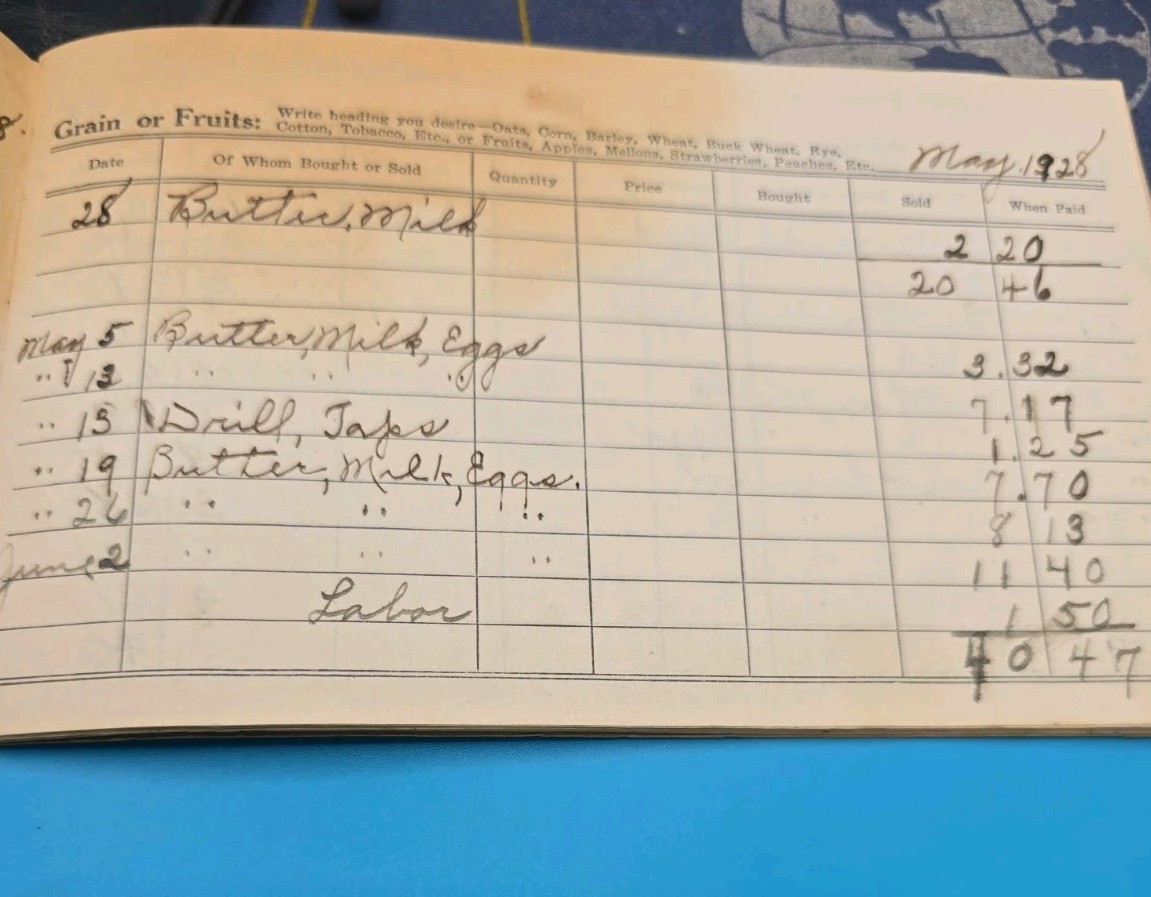 8.
Grain or Fruits: Write heading you desire—Oats, Corn, Barley, Wheat, Buck Wheat, Rye,
Cotton, Tobacco, Etc., or Fruits, Apples, Mellons, Strawberries, Peaches, Etc.
May, 1928
Date Of Whom Bought or Sold Quantity Price Bought Sold When Paid
28 Butter, Milk 2 20
20 46
May 5 Butter, Milk, Eggs 3.32
" 13 " " " 7.17
" 15 Drill, Taps 1.25
" 19 Butter, Milk, Eggs. 7.70
" 26 " " " 8 13
June 2 " " " 11 40
Labor 1 50
40 47